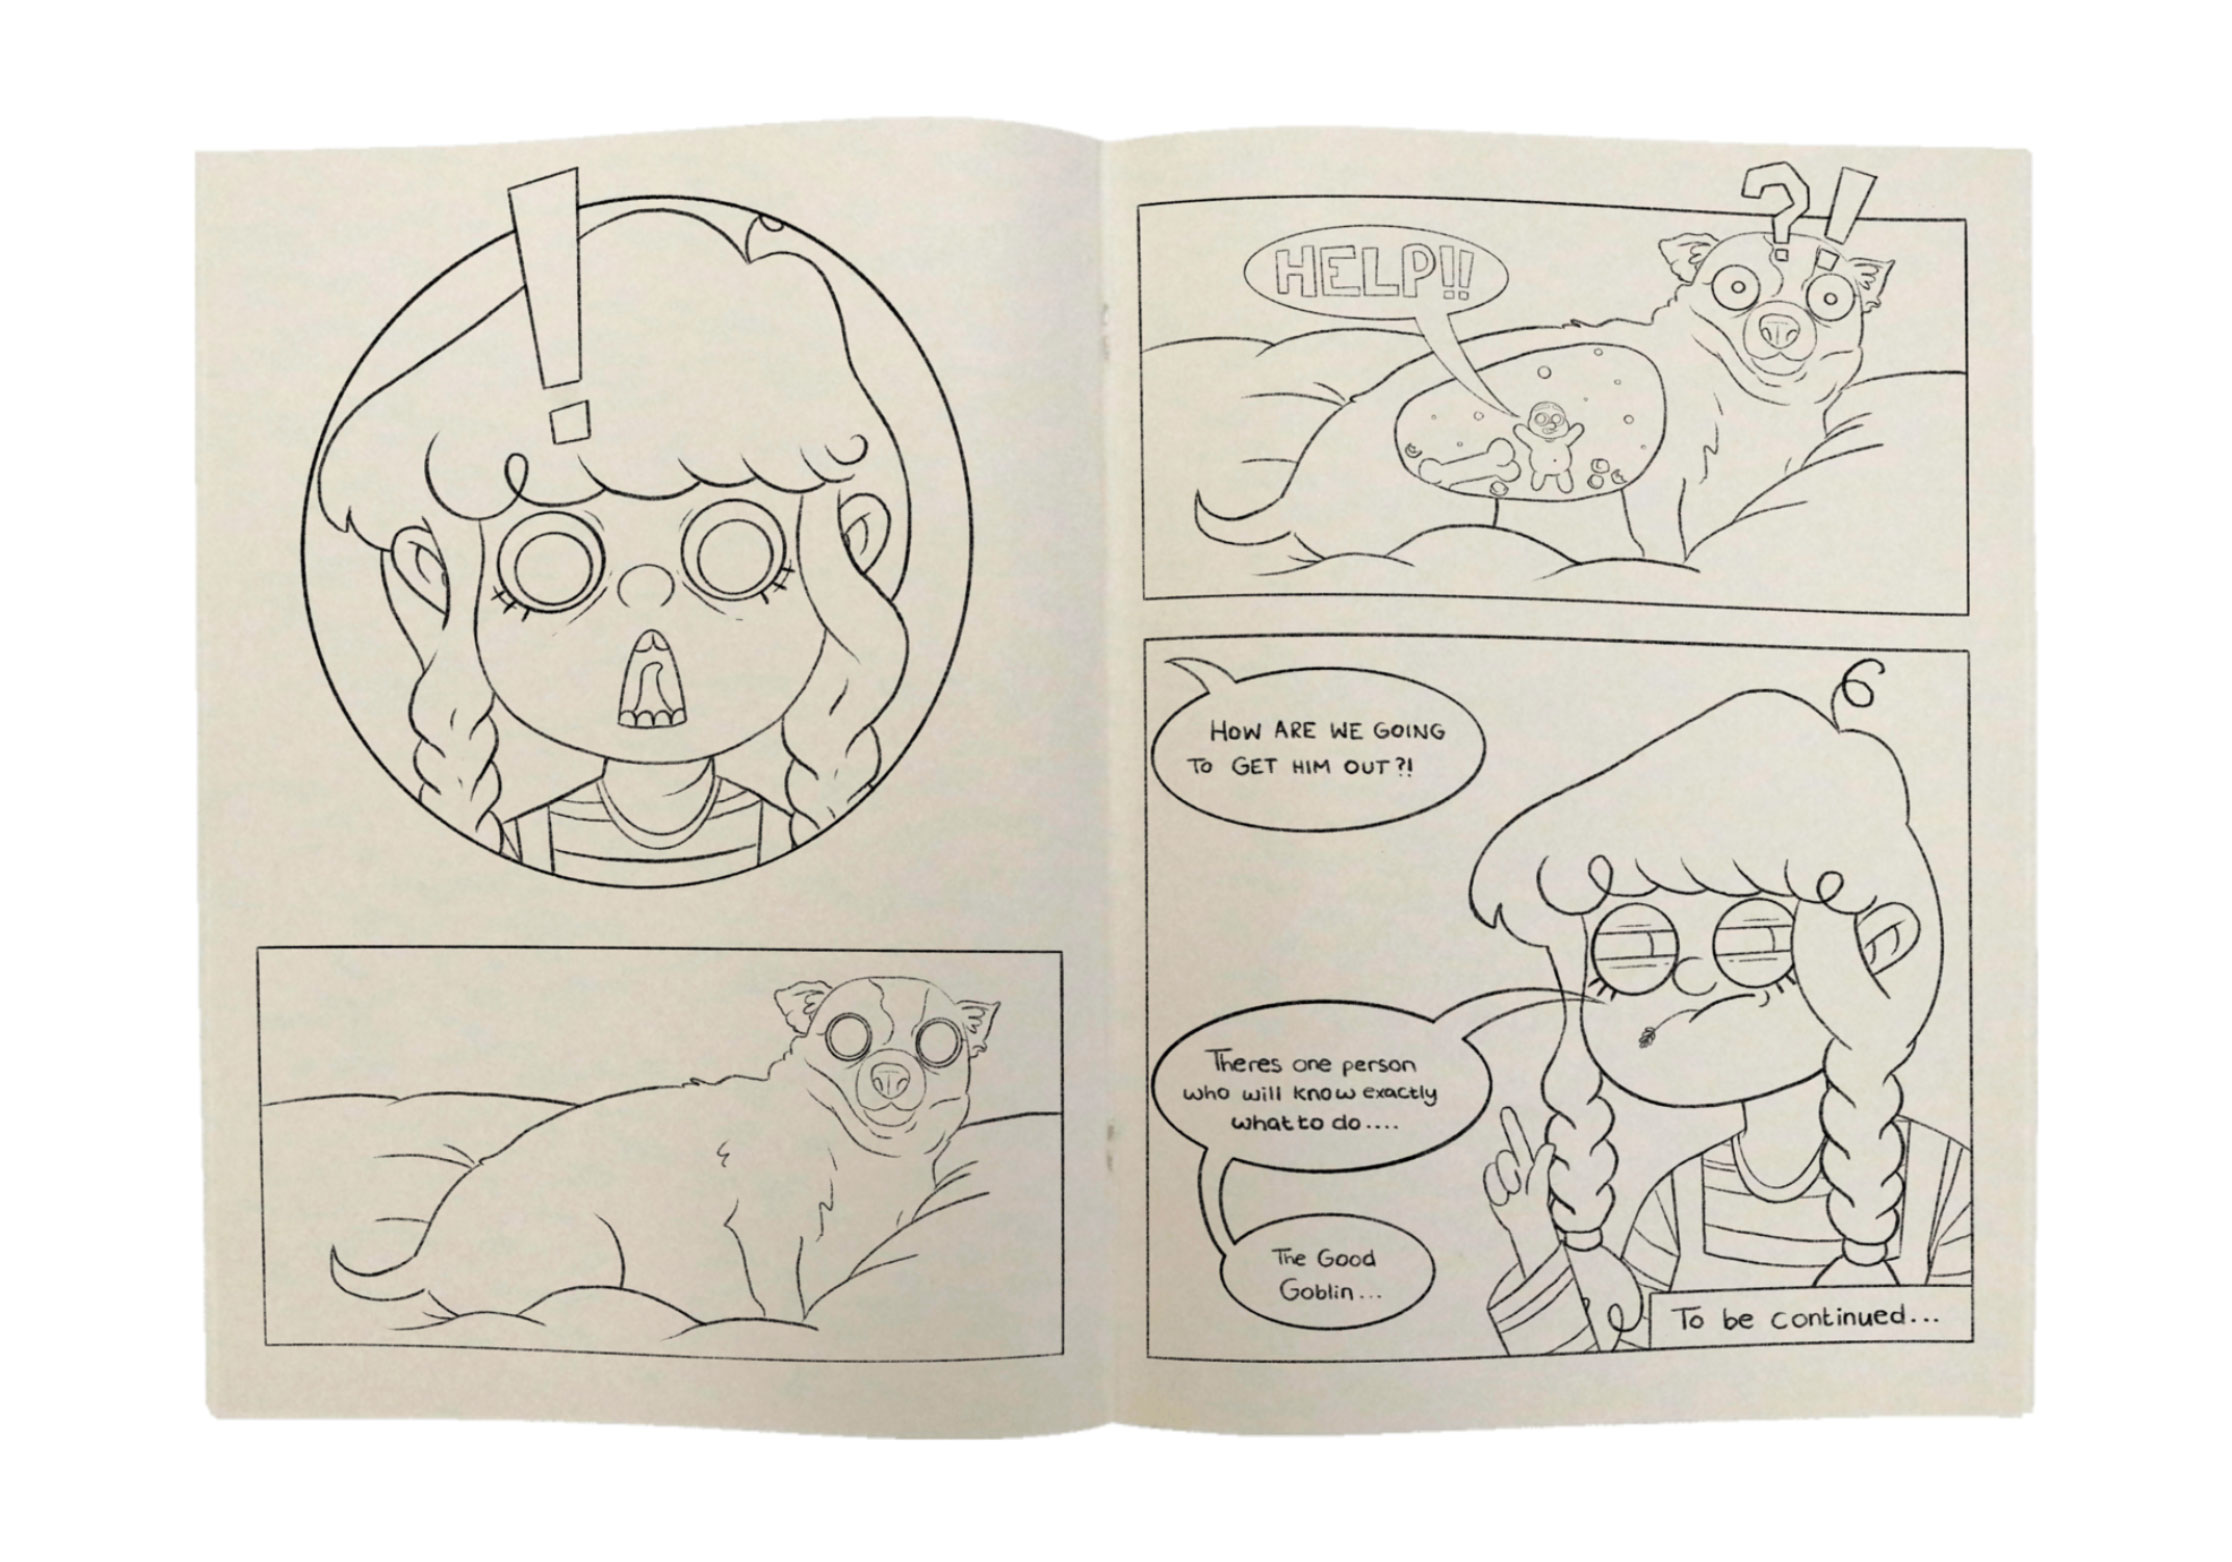 !
? !
HELP!!
HOW ARE WE GOING
TO GET HIM OUT?!
Theres one person
who will know exactly
what to do....
The Good
Goblin...
To be continued...